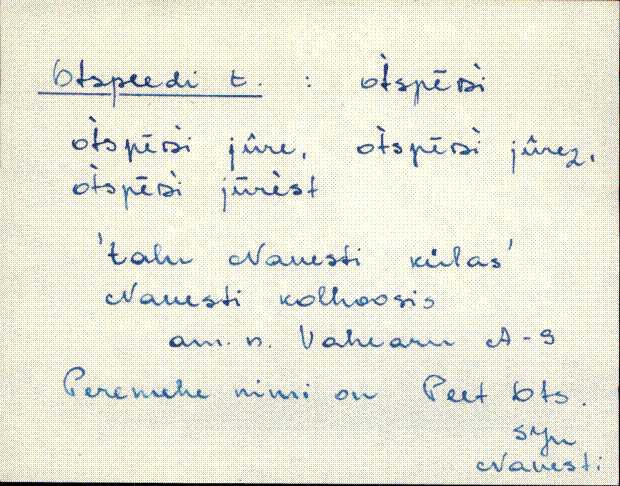 Otspeedi t. : òtspēᴅ̀i
òtspēᴅ̀i jûre, òtspēᴅ̀i jûrez,
òtspēᴅ̀i jūrèst
'talu Navesti külas'
Navesti kolhoosis
am. n. Vahearu A-9
Peremehe nimi on Peet Ots.
syn
Navesti